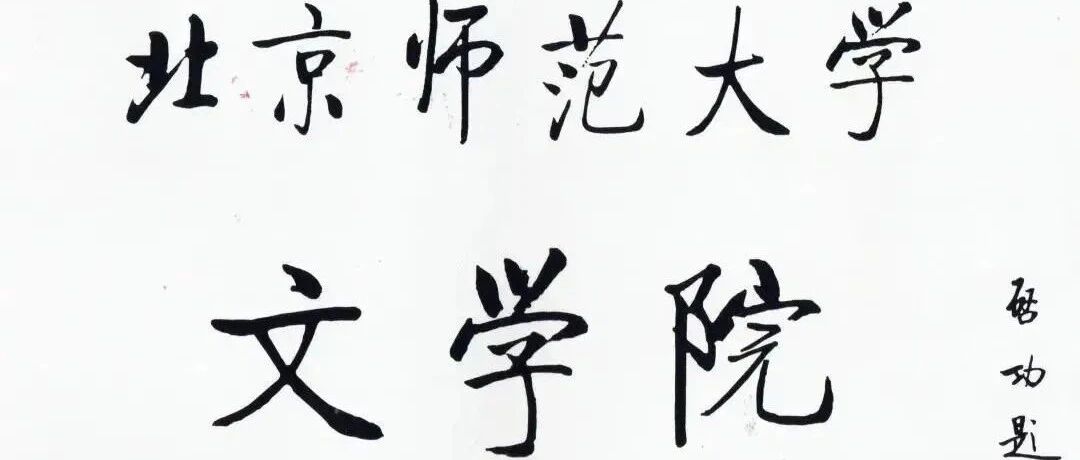 北京师范大学
文学院
启功题